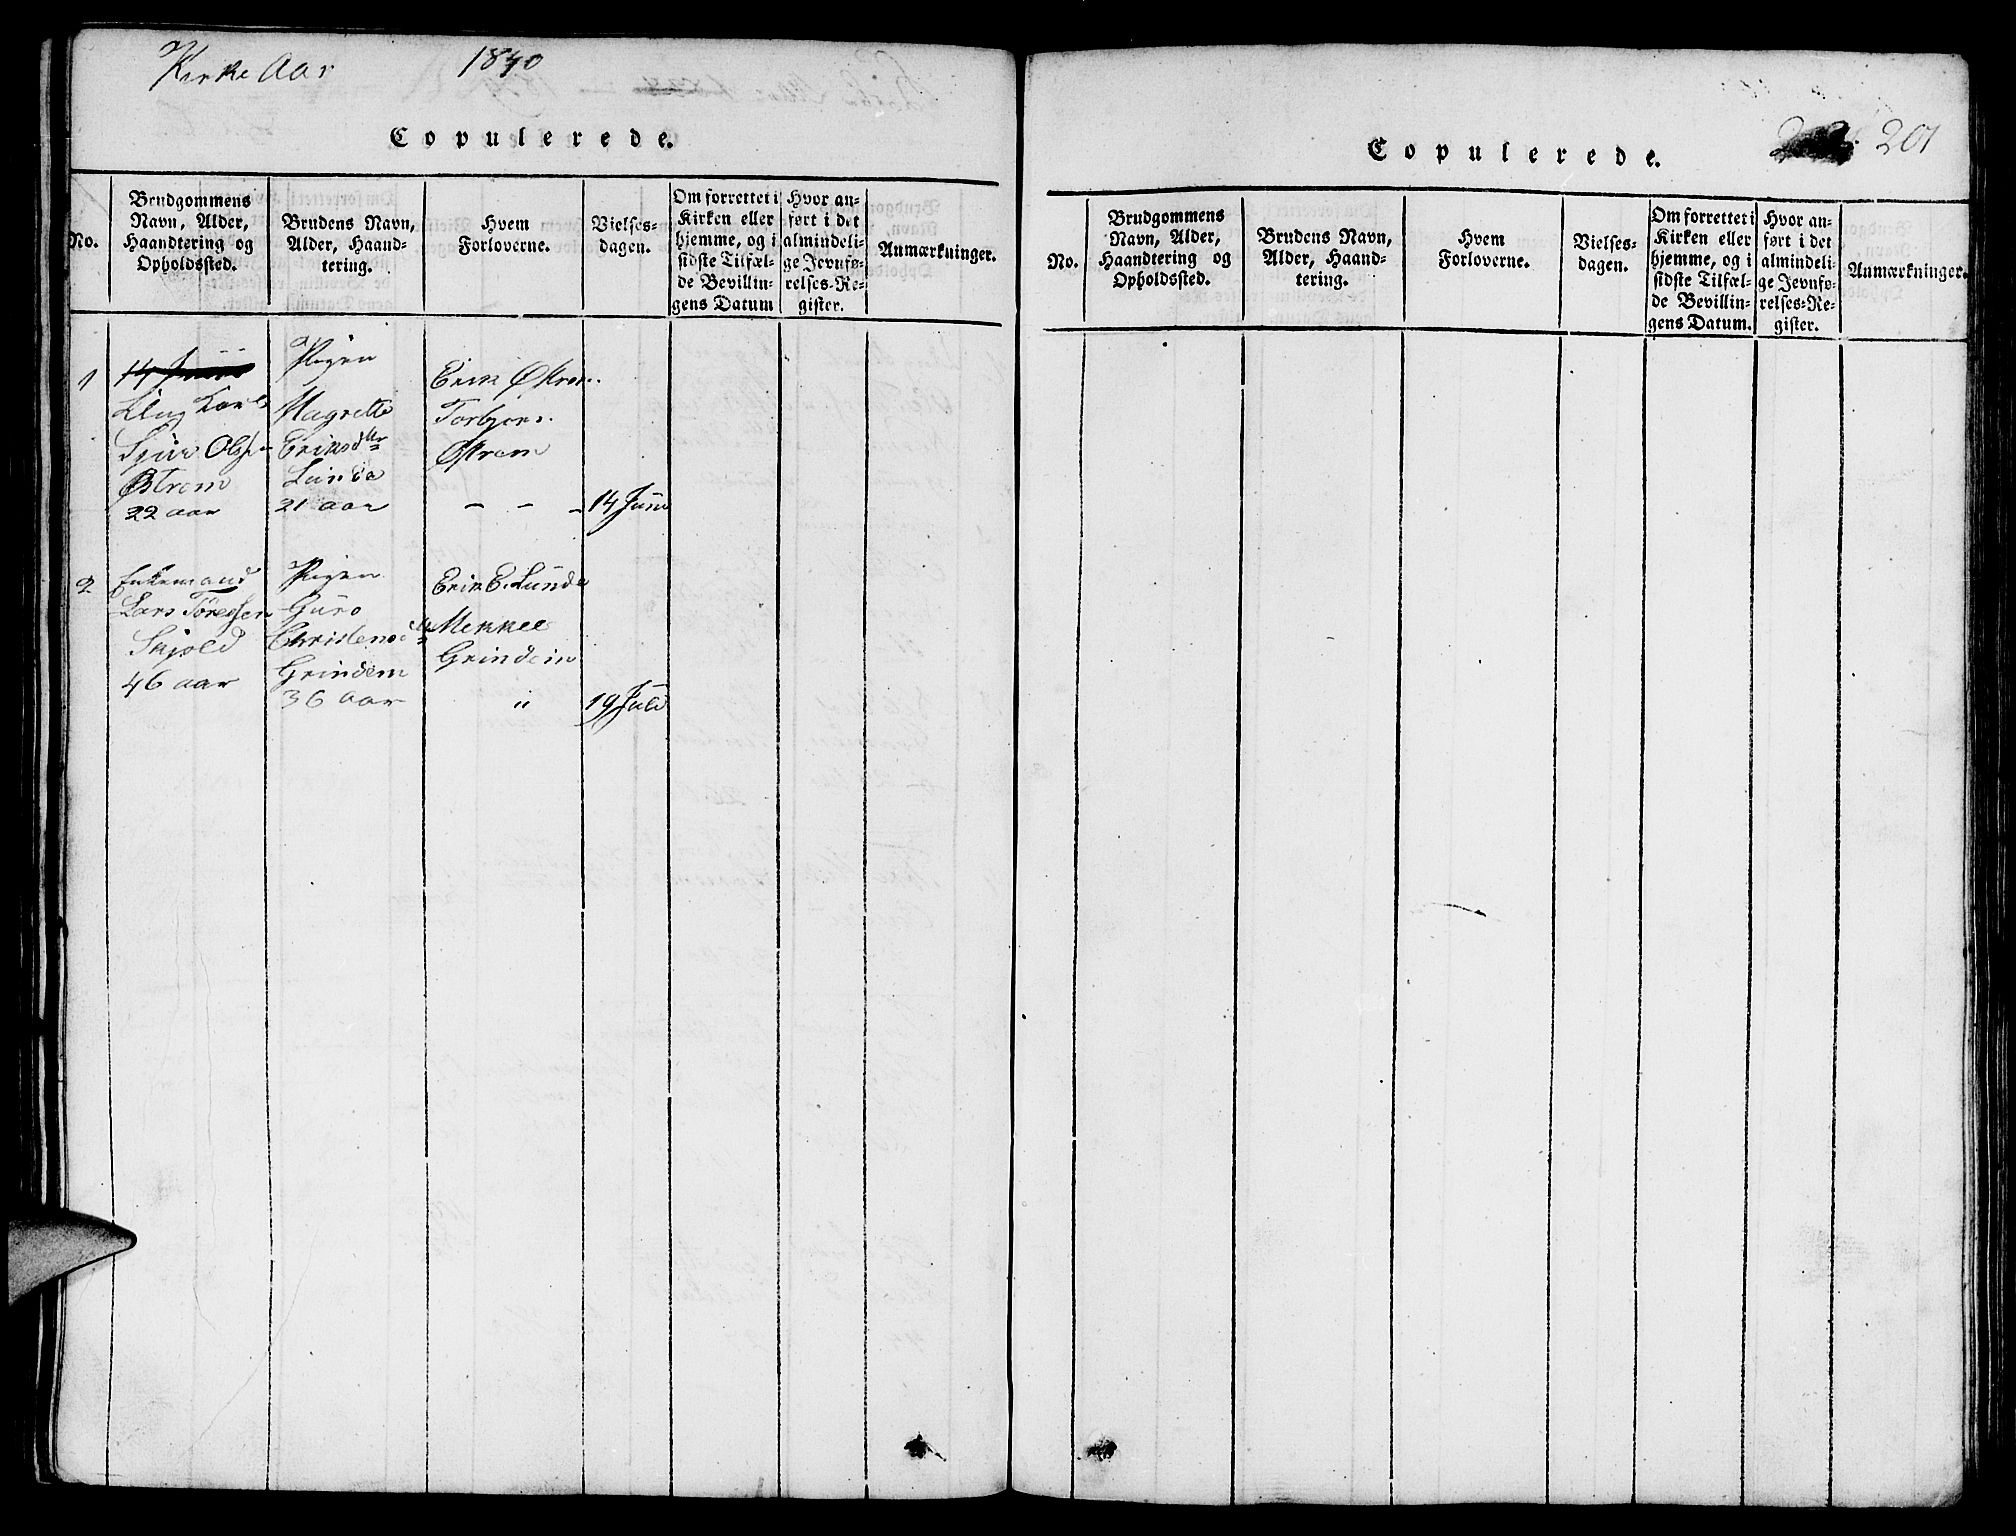 Kirke Aar 1840
Copulerede.
No.
Brudgommens
Navn, Alder,
Haandtering og
Opholdssted.
Brudens Navn,
Alder, Haand-
tering.
Hvem
Forloverne.
Vielses-
dagen.
Om forrettet i
Kirken eller
hjemme, og i
sidste Tilfæl-
de Bevillin-
gens Datum
Hvor an-
ført i det
almindeli-
ge Jevnfø-
relses-Re-
gister.
Anmærkninger.
1
14 Juni
Ung Karl
Sjur Olsen
Østrem
22 aar
Pigen
Magrette
Eriksdtr
Lunde
21 aar
Erik Østrem
Torbjørn
Østrem
- - -
14 Juni
2
Enkemand
Lars Tøressen
Skjold
46 aar
Pigen
Guro
Christensdtr
Grindem
36 aar
Erik E. Lunde
Mekkel
Grindem
"
19 Juli
201
Copulerede.
No.
Brudgommens
Navn, Alder,
Haandtering og
Opholdssted.
Brudens Navn,
Alder, Haand-
tering.
Hvem
Forloverne.
Vielses-
dagen.
Om forrettet i
Kirken eller
hjemme, og i
sidste Tilfæl-
de Bevillin-
gens Datum.
Hvor an-
ført i det
almindeli-
ge Jevnfø-
relses-Re-
gister.
Anmærkninger.